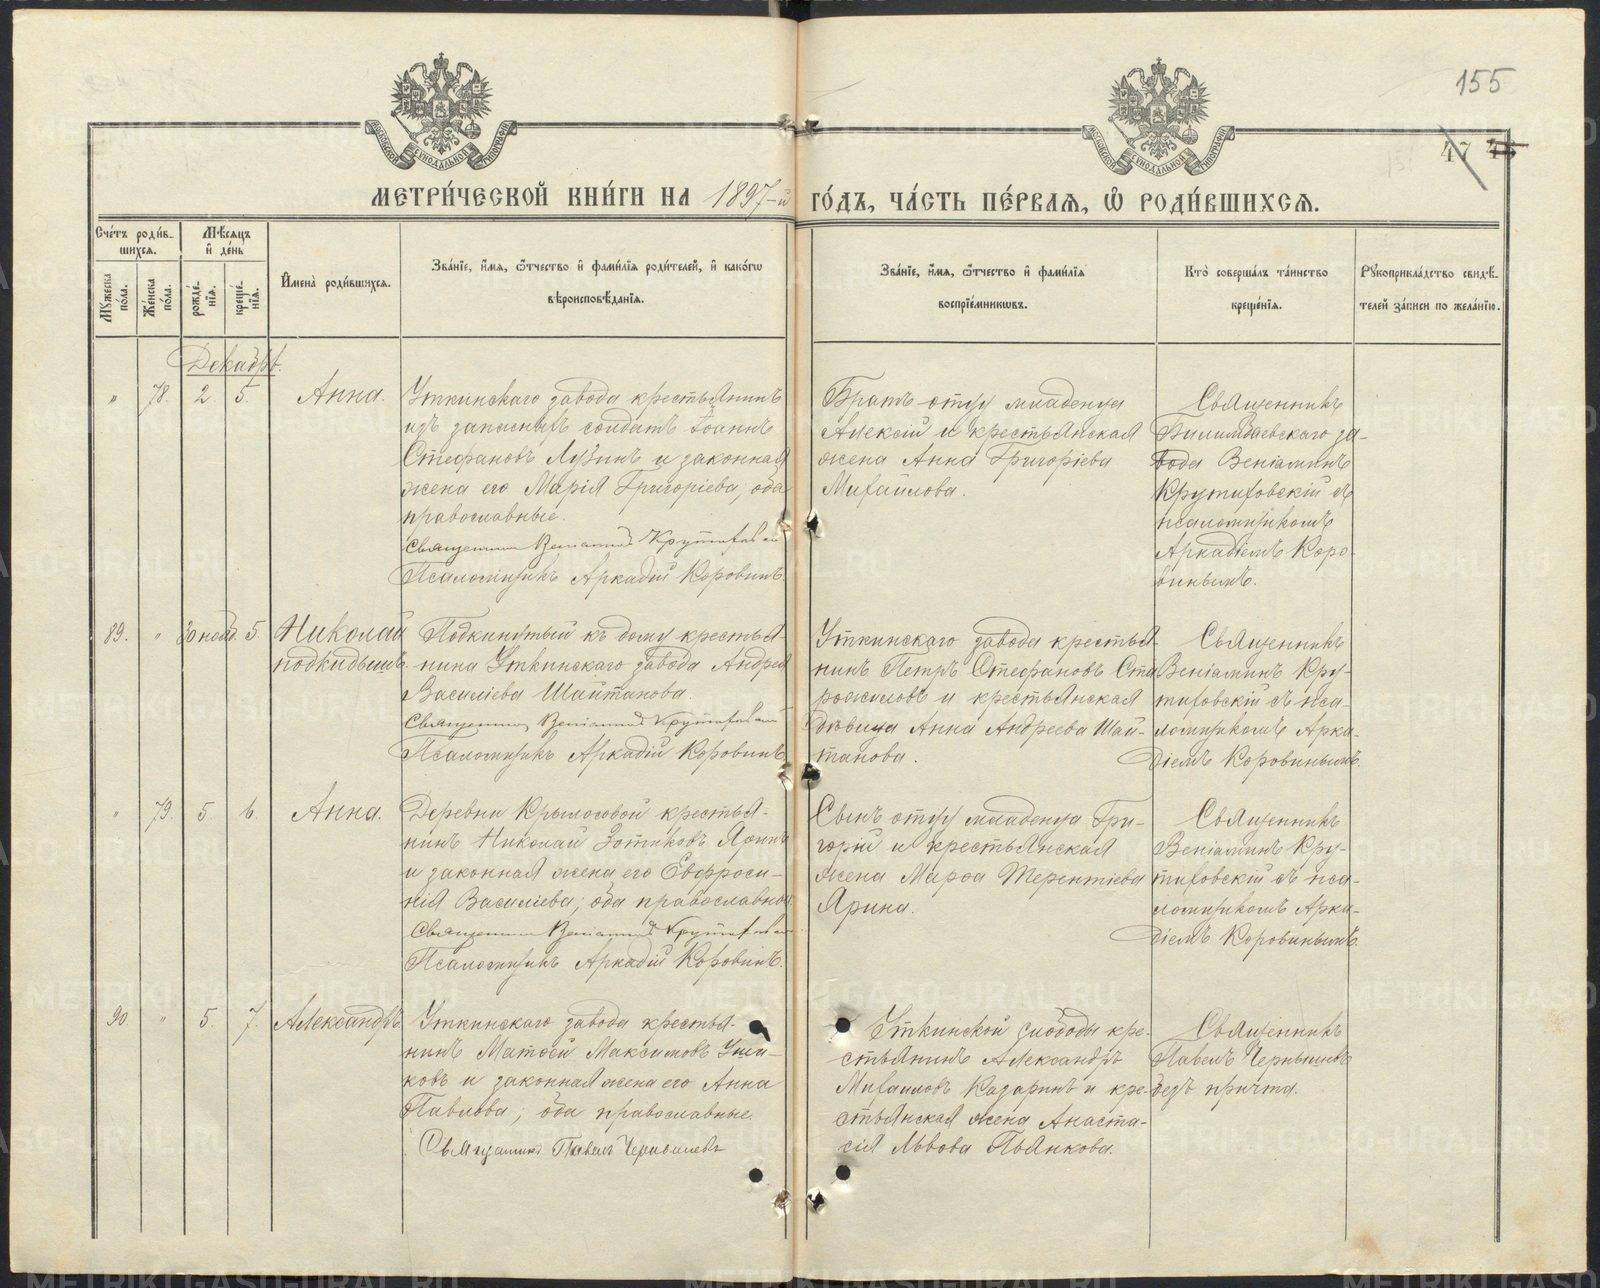 155
47 46
МЕТРИ́ЧЕСКОЙ КНИ́ГИ НА 1897-й ГО́ДЪ, ЧА́СТЬ ПЕ́РВАЯ, Ѡ РОДИ́ВШИХСЯ.
Сче́тъ роди́в-
шихся.
Мѣ́сяцъ
и де́нь
Му́жеска
по́ла.
Же́нска
по́ла.
рожде́-
нїя.
креще́-
нїя.
И҆мена̀ роди́вшихся.
Зва́нїе, и҆́мя, ѻ҆́тчество и҆ фами́лїя роди́телей, и҆ како́гѡ
вѣроисповѣ́данїя.
Зва́нїе, и҆́мя, ѻ҆́тчество и҆ фами́лїя
воспрїе́мникѡвъ.
Кто̀ соверша́лъ та́инство
креще́нїя.
Рꙋкоприкла́дство свидѣ́-
телей за́писи по жела́нїю.
Декабрь.
" 78. 2 5. Анна.
Уткинскаго завода крестьянинъ
изъ запасныхъ солдатъ Іоаннъ
Стефановъ Лузинъ и законная
жена его Марія Григоріева, оба
православные.
Священникъ Веніаминъ Крутиховскій
Псаломщикъ Аркадій Коровинъ.
Братъ отцу младенца
Алексій и крестьянская
жена Анна Григоріева
Михайлова.
Священникъ
Билимбаевскаго за-
вода Веніаминъ
Крутиховскій съ
псаломщикомъ
Аркадіемъ Коро-
винымъ.
89. " 30 нояб. 5. Николай
подкидышъ.
Подкинутый къ дому крестья-
нина Уткинскаго завода Андрея
Василіева Шайтанова.
Священникъ Веніаминъ Крутиховскій
Псаломщикъ Аркадій Коровинъ.
Уткинскаго завода крестья-
нинъ Петръ Стефановъ Ста
рожиловъ и крестьянская
дѣвица Анна Андреева Шай-
танова.
Священникъ
Веніаминъ Кру-
тиховскій съ пса-
ломщикомъ Арка-
діемъ Коровинымъ.
" 79. 5. 6. Анна.
Деревни Крылосовой крестья-
нинъ Николай Зотиковъ Яринъ
и законная жена его Евфроси-
нія Василіева, оба православные
Священникъ Веніаминъ Крутиховскій
Псаломщикъ Аркадій Коровинъ.
Сынъ отцу младенца Гри-
горій и крестьянская
жена Марѳа Терентіева
Ярина.
Священникъ
Веніаминъ Кру-
тиховскій съ пса-
ломщикомъ Арка-
діемъ Коровинымъ.
90. " 5. 7. Александръ.
Уткинскаго завода крестья-
нинъ Матѳей Максимовъ Уша-
ковъ и законная жена его Анна
Павлова, оба православные.
Священникъ Павелъ Чернышевъ
Уткинской слободы кре-
стьянинъ Александръ
Михаиловъ Казаринъ и кре-
стьянская жена Анаста-
сія Львова Пьянкова.
Священникъ
Павелъ Чернышевъ
безъ причта.